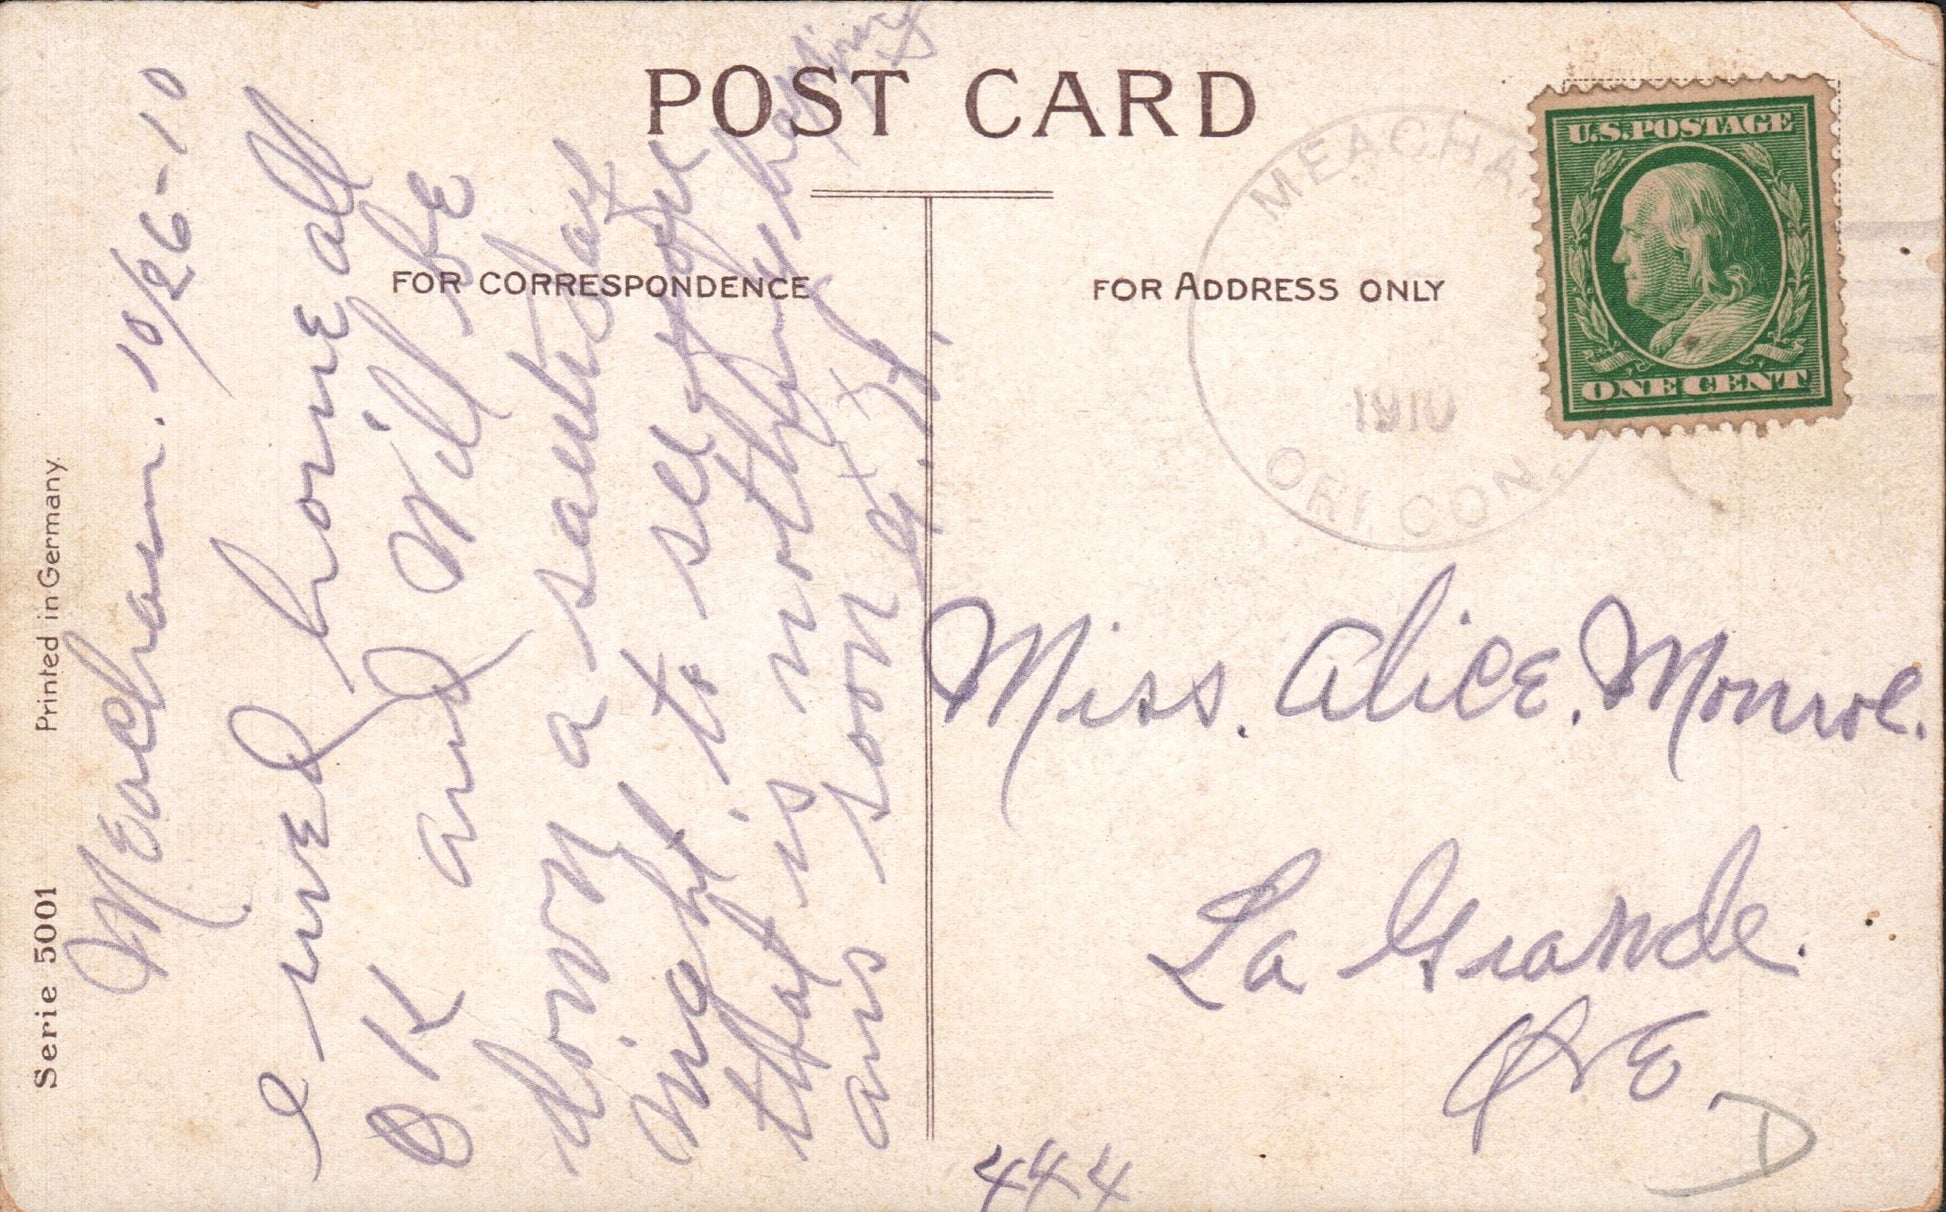 POST CARD
FOR CORRESPONDENCE
FOR ADDRESS ONLY
Serie 5001
Printed in Germany.
Meacham. 10/26-10
home all
O K and Will be
down a saturday
night. to see you
that is nothing happing
ans soon
U.S. POSTAGE
ONE CENT
MEACHA
1910
Miss. Alice. Monroe.
La Grande.
Ore.
D